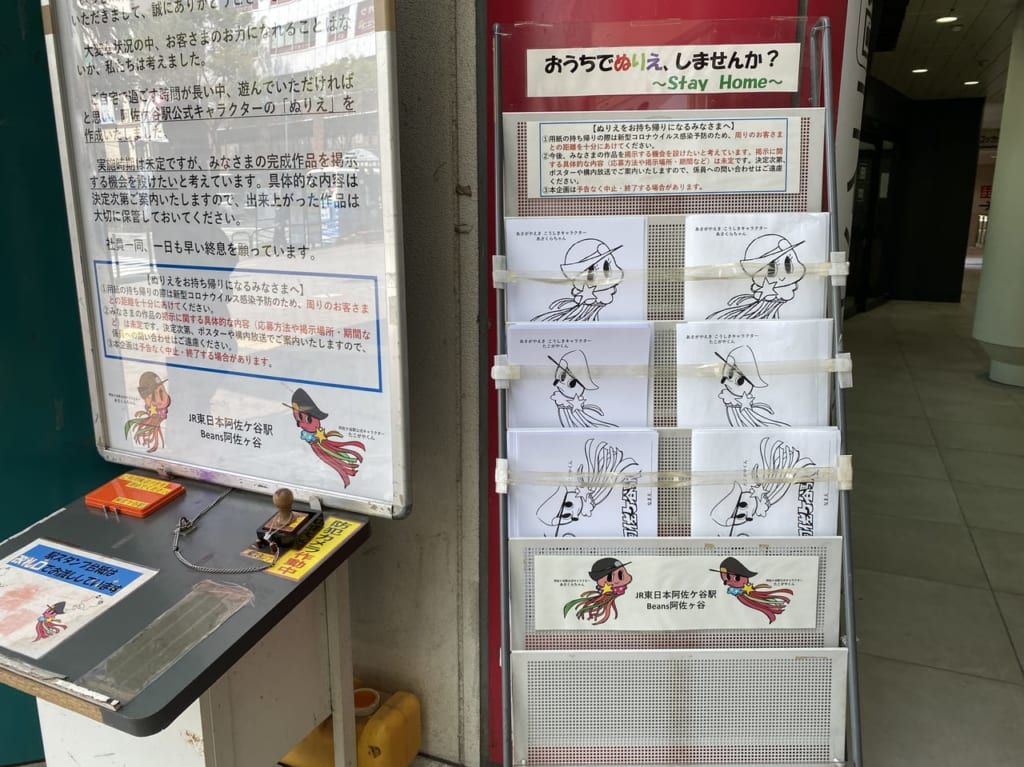 いただきまして、誠にありがとうござ
大変な状況の中、お客さまのお力になれることはな
いか、私たちは考えました。
ご自宅で過ごす時間が長い中、遊んでいただければ
と思い、阿佐ケ谷駅公式キャラクターの「ぬりえ」を
作成いたしました。
実施時期は未定ですが、みなさまの完成作品を掲示
する機会を設けたいと考えています。具体的な内容は
決定次第ご案内いたしますので、出来上がった作品は
大切に保管しておいてください。
社員一同、一日も早い終息を願っています。
【ぬりえをお持ち帰りになるみなさまへ】
①用紙の持ち帰りの際は新型コロナウイルス感染予防のため、周りのお客さま
との距離を十分にあけてください。
②みなさまの作品の掲示に関する具体的な内容（応募方法や掲示場所・期間な
ど）は未定です。決定次第、ポスターや構内放送でご案内いたしますので、
係員への問い合わせはご遠慮ください。
③本企画は予告なく中止・終了する場合があります。
JR東日本阿佐ケ谷駅
Beans阿佐ヶ谷
阿佐ケ谷駅公式キャラクター
たこがやくん
防犯カメラ作動中
駅スタンプ台紙は
改札口でお渡ししています
おうちでぬりえ、しませんか？
～Stay Home～
【ぬりえをお持ち帰りになるみなさまへ】
①用紙の持ち帰りの際は新型コロナウイルス感染予防のため、周りのお客さま
との距離を十分にあけてください。
②今後、みなさまの作品を掲示する機会を設けたいと考えています。掲示に関
する具体的な内容（応募方法や掲示場所・期間など）は未定です。決定次第、
ポスターや構内放送でご案内いたしますので、係員への問い合わせはご遠慮
ください。
③本企画は予告なく中止・終了する場合があります。
あさがやえき こうしきキャラクター
あさくらちゃん
あさがやえき こうしきキャラクター
あさくらちゃん
あさがやえき こうしきキャラクター
たこがやくん
あさがやえき こうしきキャラクター
たこがやくん
JR東日本阿佐ケ谷駅
Beans阿佐ヶ谷